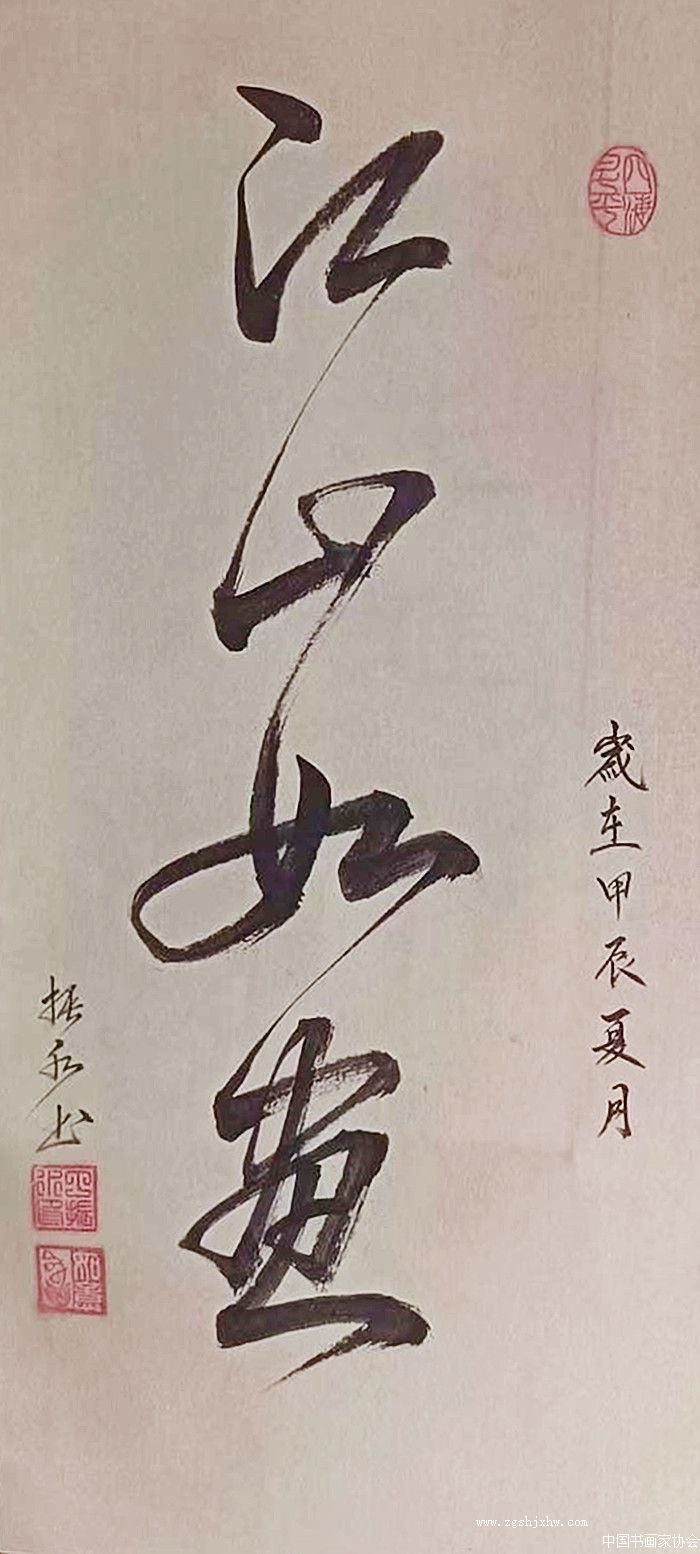 歲在甲辰夏月
江山如畫
振永书
www.zgshjxhw.com
中国书画家协会